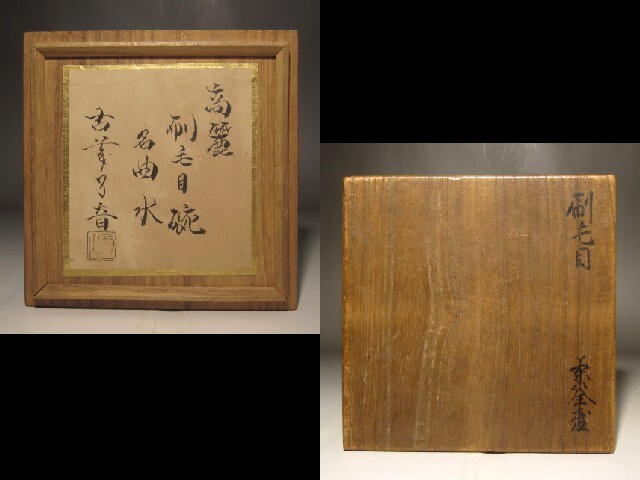 高麗
刷毛目碗
名曲水
古筆了音
刷毛目